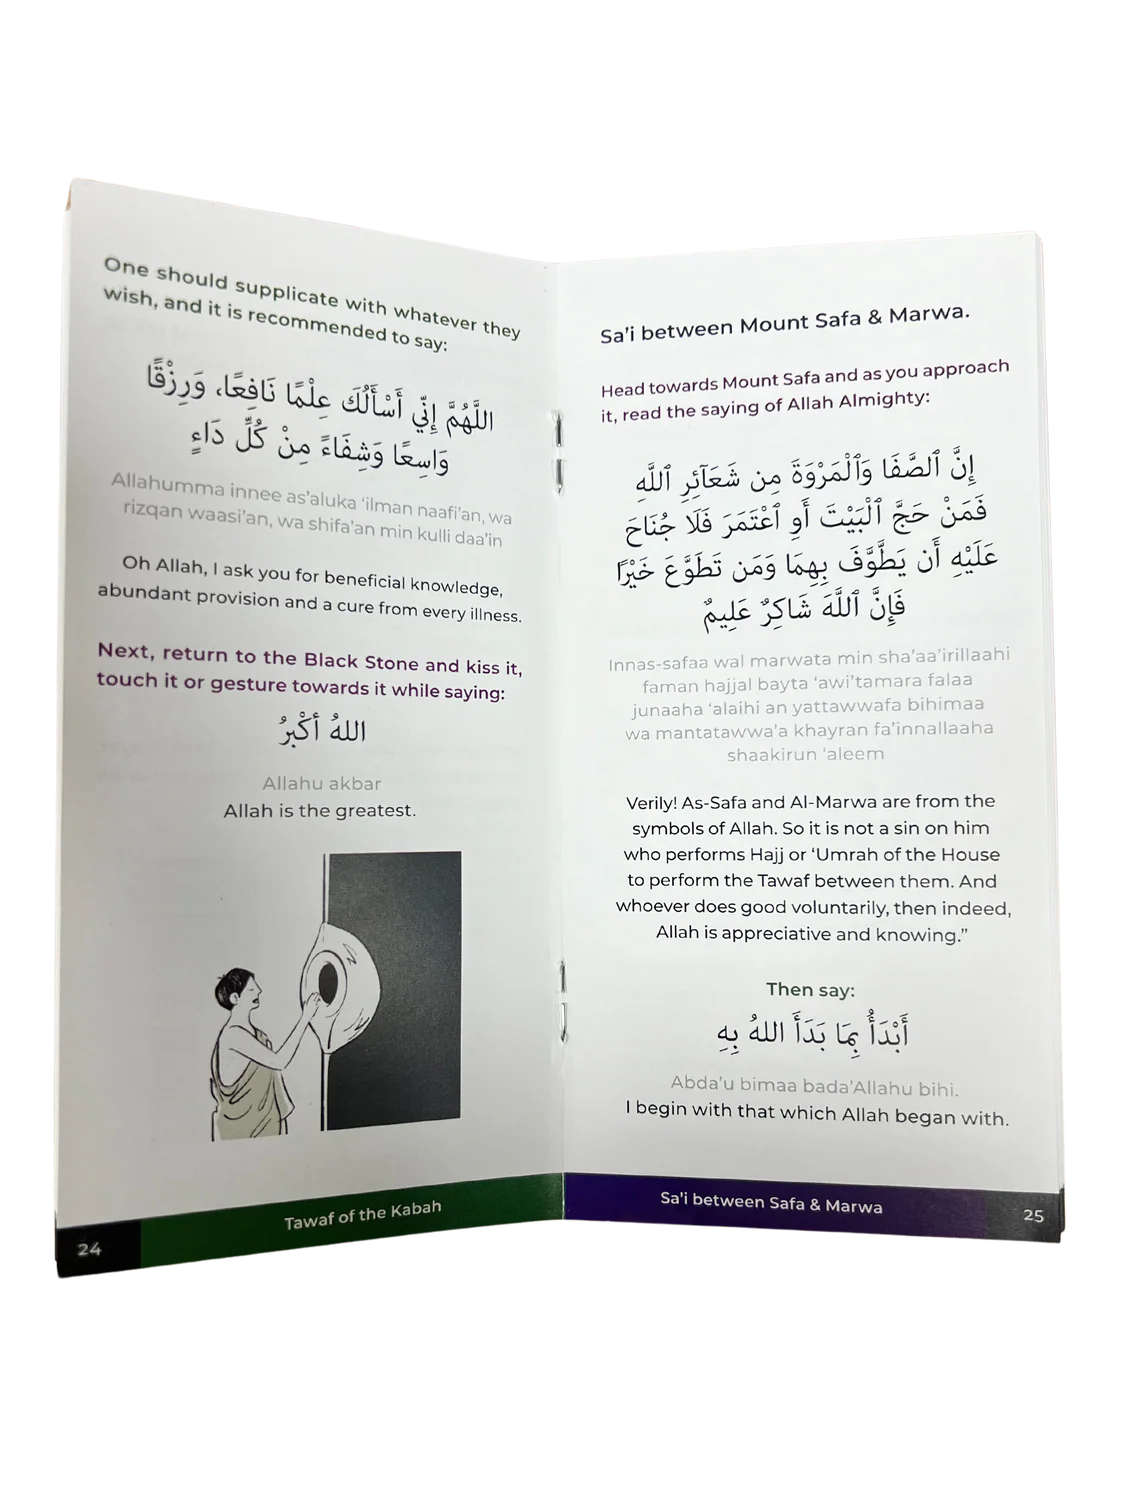 One should supplicate with whatever they
wish, and it is recommended to say:
اللَّهُمَّ إِنِّي أَسْأَلُكَ عِلْمًا نَافِعًا، وَرِزْقًا
وَاسِعًا وَشِفَاءً مِنْ كُلِّ دَاءٍ
Allahumma innee as'aluka ‘ilman naafi'an, wa
rizqan waasi'an, wa shifa'an min kulli daa'in
Oh Allah, I ask you for beneficial knowledge,
abundant provision and a cure from every illness.
Next, return to the Black Stone and kiss it,
touch it or gesture towards it while saying:
اللهُ أكْبَرُ
Allahu akbar
Allah is the greatest.
Tawaf of the Kabah
24
Sa'i between Mount Safa & Marwa.
Head towards Mount Safa and as you approach
it, read the saying of Allah Almighty:
إِنَّ ٱلصَّفَا وَٱلْمَرْوَةَ مِن شَعَآئِرِ ٱللَّهِ
فَمَنْ حَجَّ ٱلْبَيْتَ أَوِ ٱعْتَمَرَ فَلَا جُنَاحَ
عَلَيْهِ أَن يَطَّوَّفَ بِهِمَا وَمَن تَطَوَّعَ خَيْرًا
فَإِنَّ ٱللَّهَ شَاكِرٌ عَلِيمٌ
Innas-safaa wal marwata min sha'aa'irillaahi
faman hajjal bayta ‘awi'tamara falaa
junaaha ‘alaihi an yattawwafa bihimaa
wa mantatawwa'a khayran fa'innallaaha
shaakirun ‘aleem
Verily! As-Safa and Al-Marwa are from the
symbols of Allah. So it is not a sin on him
who performs Hajj or ‘Umrah of the House
to perform the Tawaf between them. And
whoever does good voluntarily, then indeed,
Allah is appreciative and knowing.”
Then say:
أَبْدَأُ بِمَا بَدَأَ اللهُ بِهِ
Abda'u bimaa bada'Allahu bihi.
I begin with that which Allah began with.
Sa'i between Safa & Marwa
25